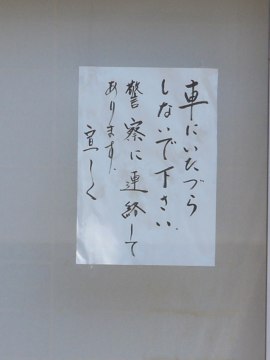 車にいたづら
しないで下さい
警察に連絡して
あります.
宜しく